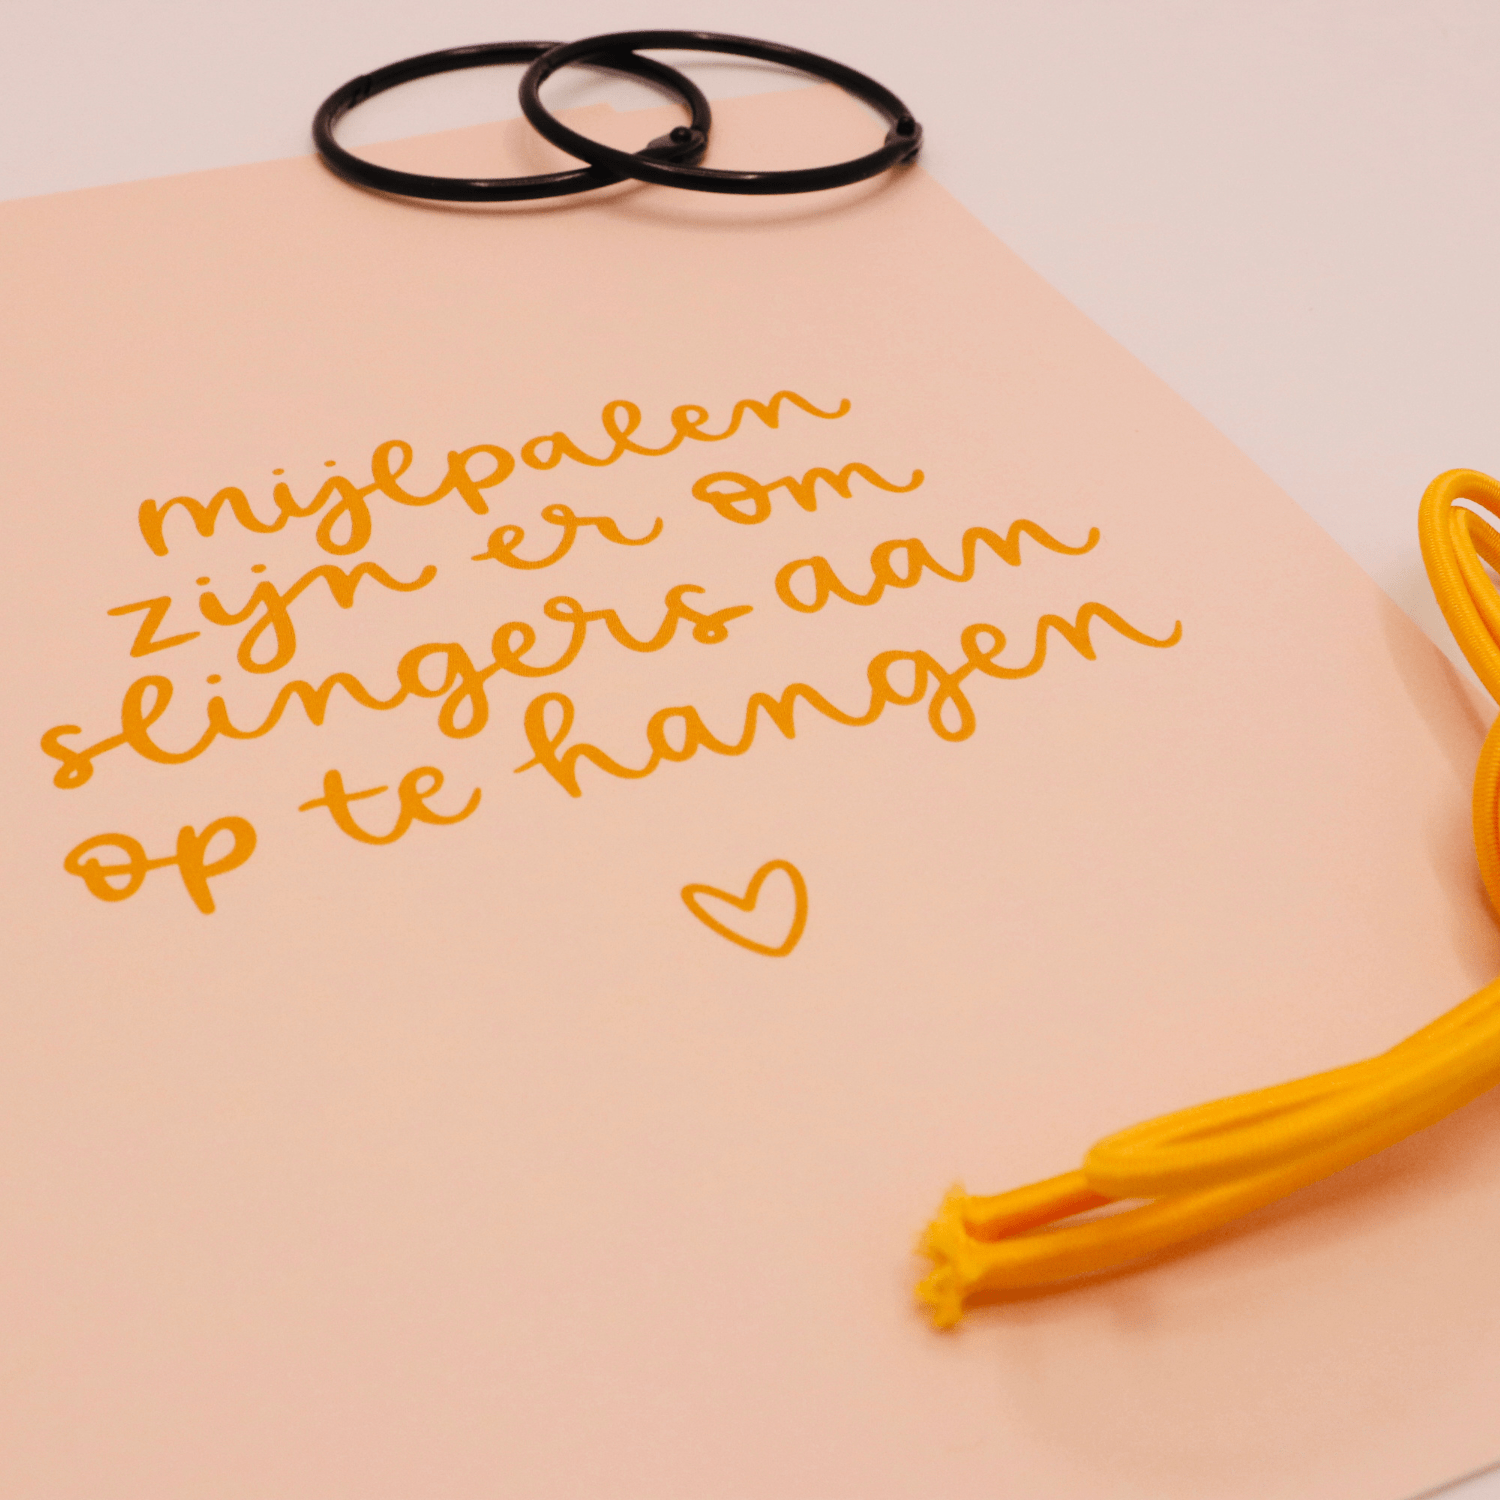 mijlpalen
zijn er om
slingers aan
op te hangen